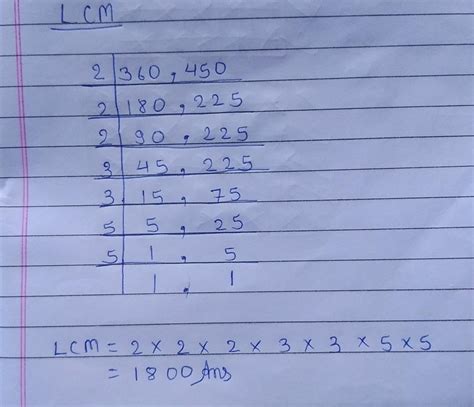 LCM
2 | 360, 450
2 | 180, 225
2 | 90, 225
3 | 45, 225
3 | 15, 75
5 | 5, 25
5 | 1, 5
1, 1
LCM = 2 × 2 × 2 × 3 × 3 × 5 × 5
= 1800 Ans